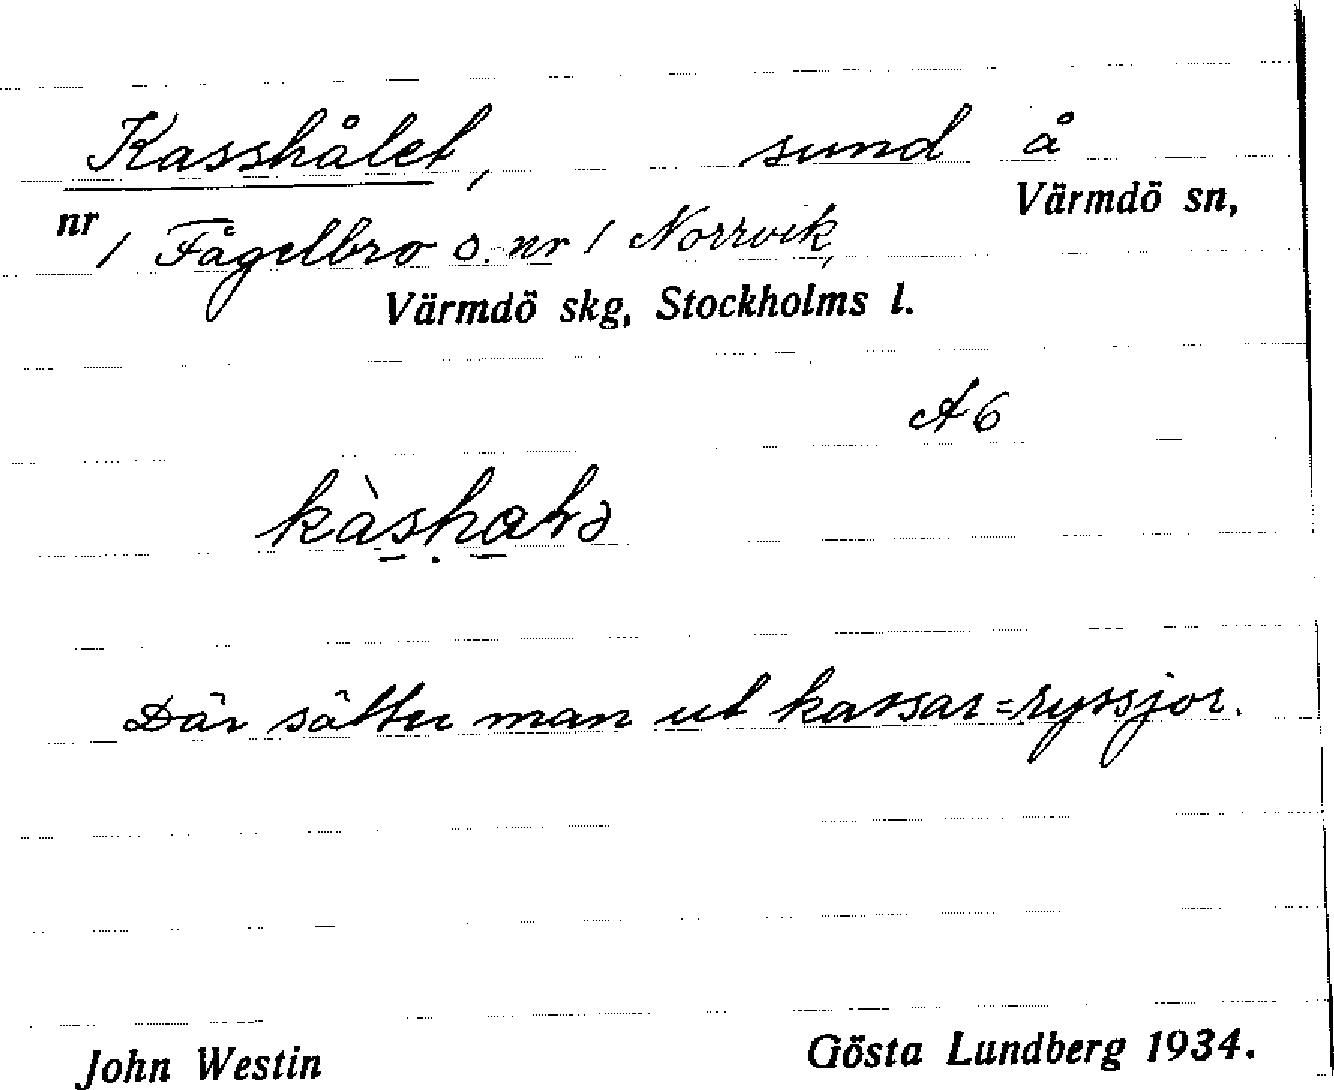 Kasshålet, sund å
Värmdö sn,
nr 1 Fågelbro o. nr 1 Norrvik,
Värmdö skg, Stockholms l.
A 6
Där sätter man ut kassar = ryssjor.
John Westin Gösta Lundberg 1934.